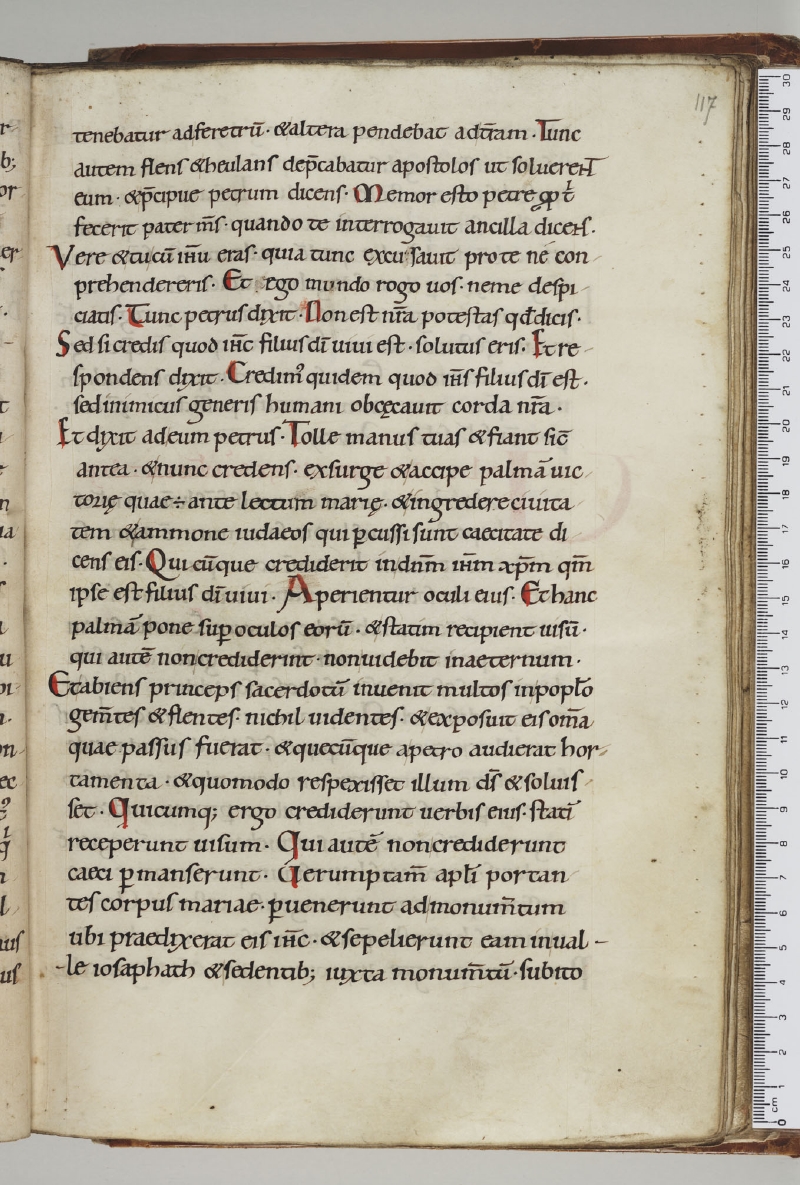 117
tenebatur ad feretrū· & altera pendebat ad trām· Tunc
autem flens & heulans dep̄cabatur apostolos ut soluerent
eum· & p̄cipue petrum dicens· Memor esto petre
fecerit pater m̄s· quando te interrogauit ancilla dicens·
Vere & tu cū ih̄u eras· quia tunc excusauit pro te ne con
prehendereris· Et ego mundo rogo uos· ne me despi
ciatis· Tunc petrus dixit· Non est nr̄a potestas qđ dicis·
Sed si credis quod ih̄c filius dī uiui est· solutus eris· Et re
spondens dixit· Credim' quidem quod ih̄s filius dī est·
sed inimicus generis humani obcęcauit corda nr̄a·
Et dixit ad eum petrus· Tolle manus tuas & fiant sic̄
antea· & nunc credens· exsurge & accipe palmā uic
torię quae ÷ ante lectum marię· & ingredere ciuita
tem & ammone iudaeos qui ꝑcussi sunt caecitate di
cens eis· Qui cūque crediderit in dn̄m ih̄m xp̄m qm̄
ipse est filius dī uiui· Aperientur oculi eius· Et hanc
palmā pone suꝑ oculos eorū· & statim recipient uisū·
qui autē non crediderint· non uidebit in aeternum·
Et abiens princeps sacerdotū inuenit multos in poplo
gem̄tes & flentes· nichil uidentes· & exposuit eis om̄a
quae passus fuerat· & quecūque a petro audierat hor
tamenta· & quomodo respexisset illum ds̄ & soluis
set· Quicumq; ergo crediderunt uerbis eius· statī
receperunt uisum· Qui autē non crediderunt
caeci ꝑmanserunt· Gerump tam̄ apl̄i portan
tes corpus mariae· ꝑuenerunt ad monum̄tum
ubi praedixerat eis ih̄c· & sepelierunt eam in ual-
-le iosaphath & sedentib; iuxta monum̄tū· subito